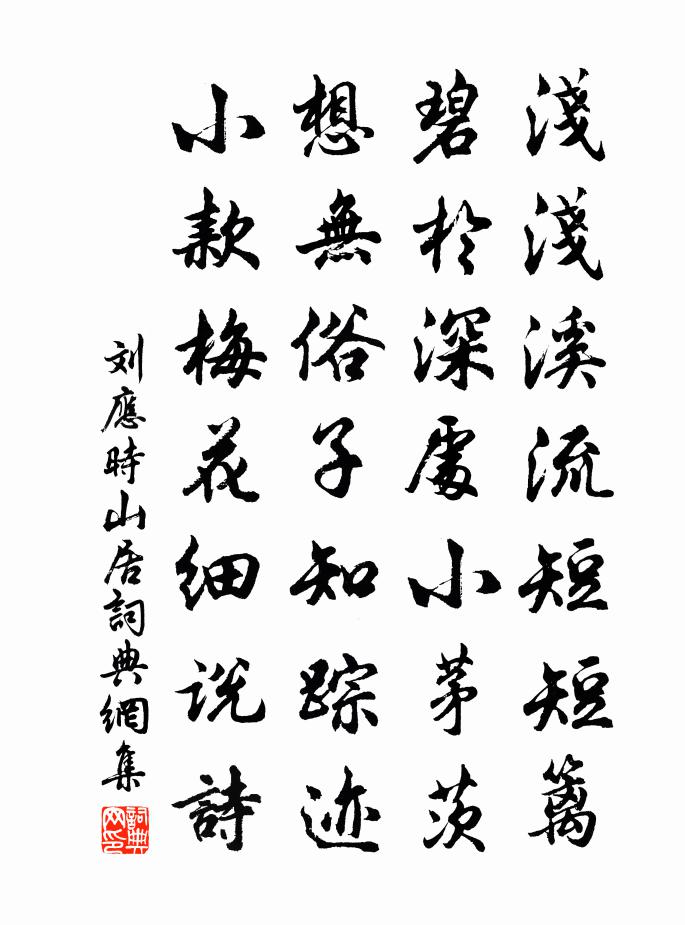 淺淺溪流短短籬
碧於深處小茅茨
想無俗子知踪迹
小款梅花细说詩
刘應時山居詞典網集
詞典网印